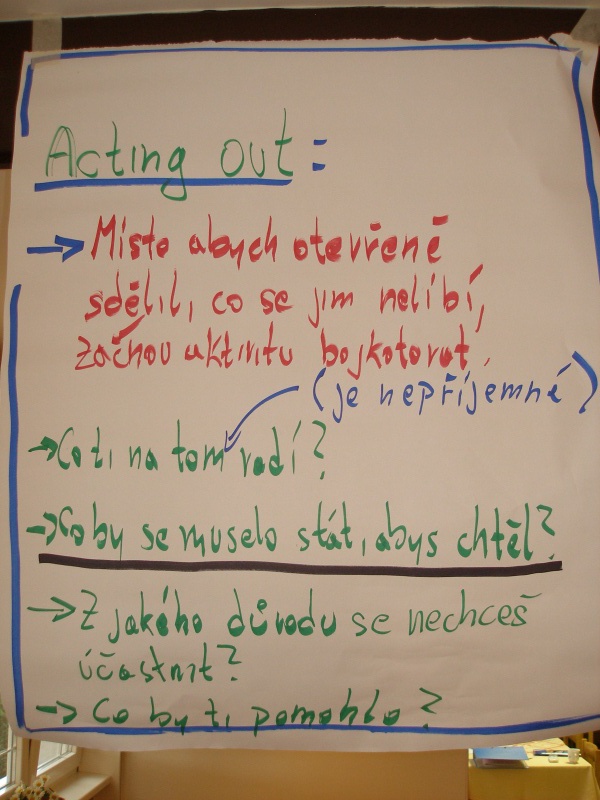 Acting out:
→ Místo abych otevřeně
sdělil, co se jim nelíbí,
začnou aktivitu bojkotovat.
(je nepříjemné)
→ Co ti na tom vadí?
→ Co by se muselo stát, abys chtěl?
→ Z jakého důvodu se nechceš
účastnit?
→ Co by ti pomohlo?